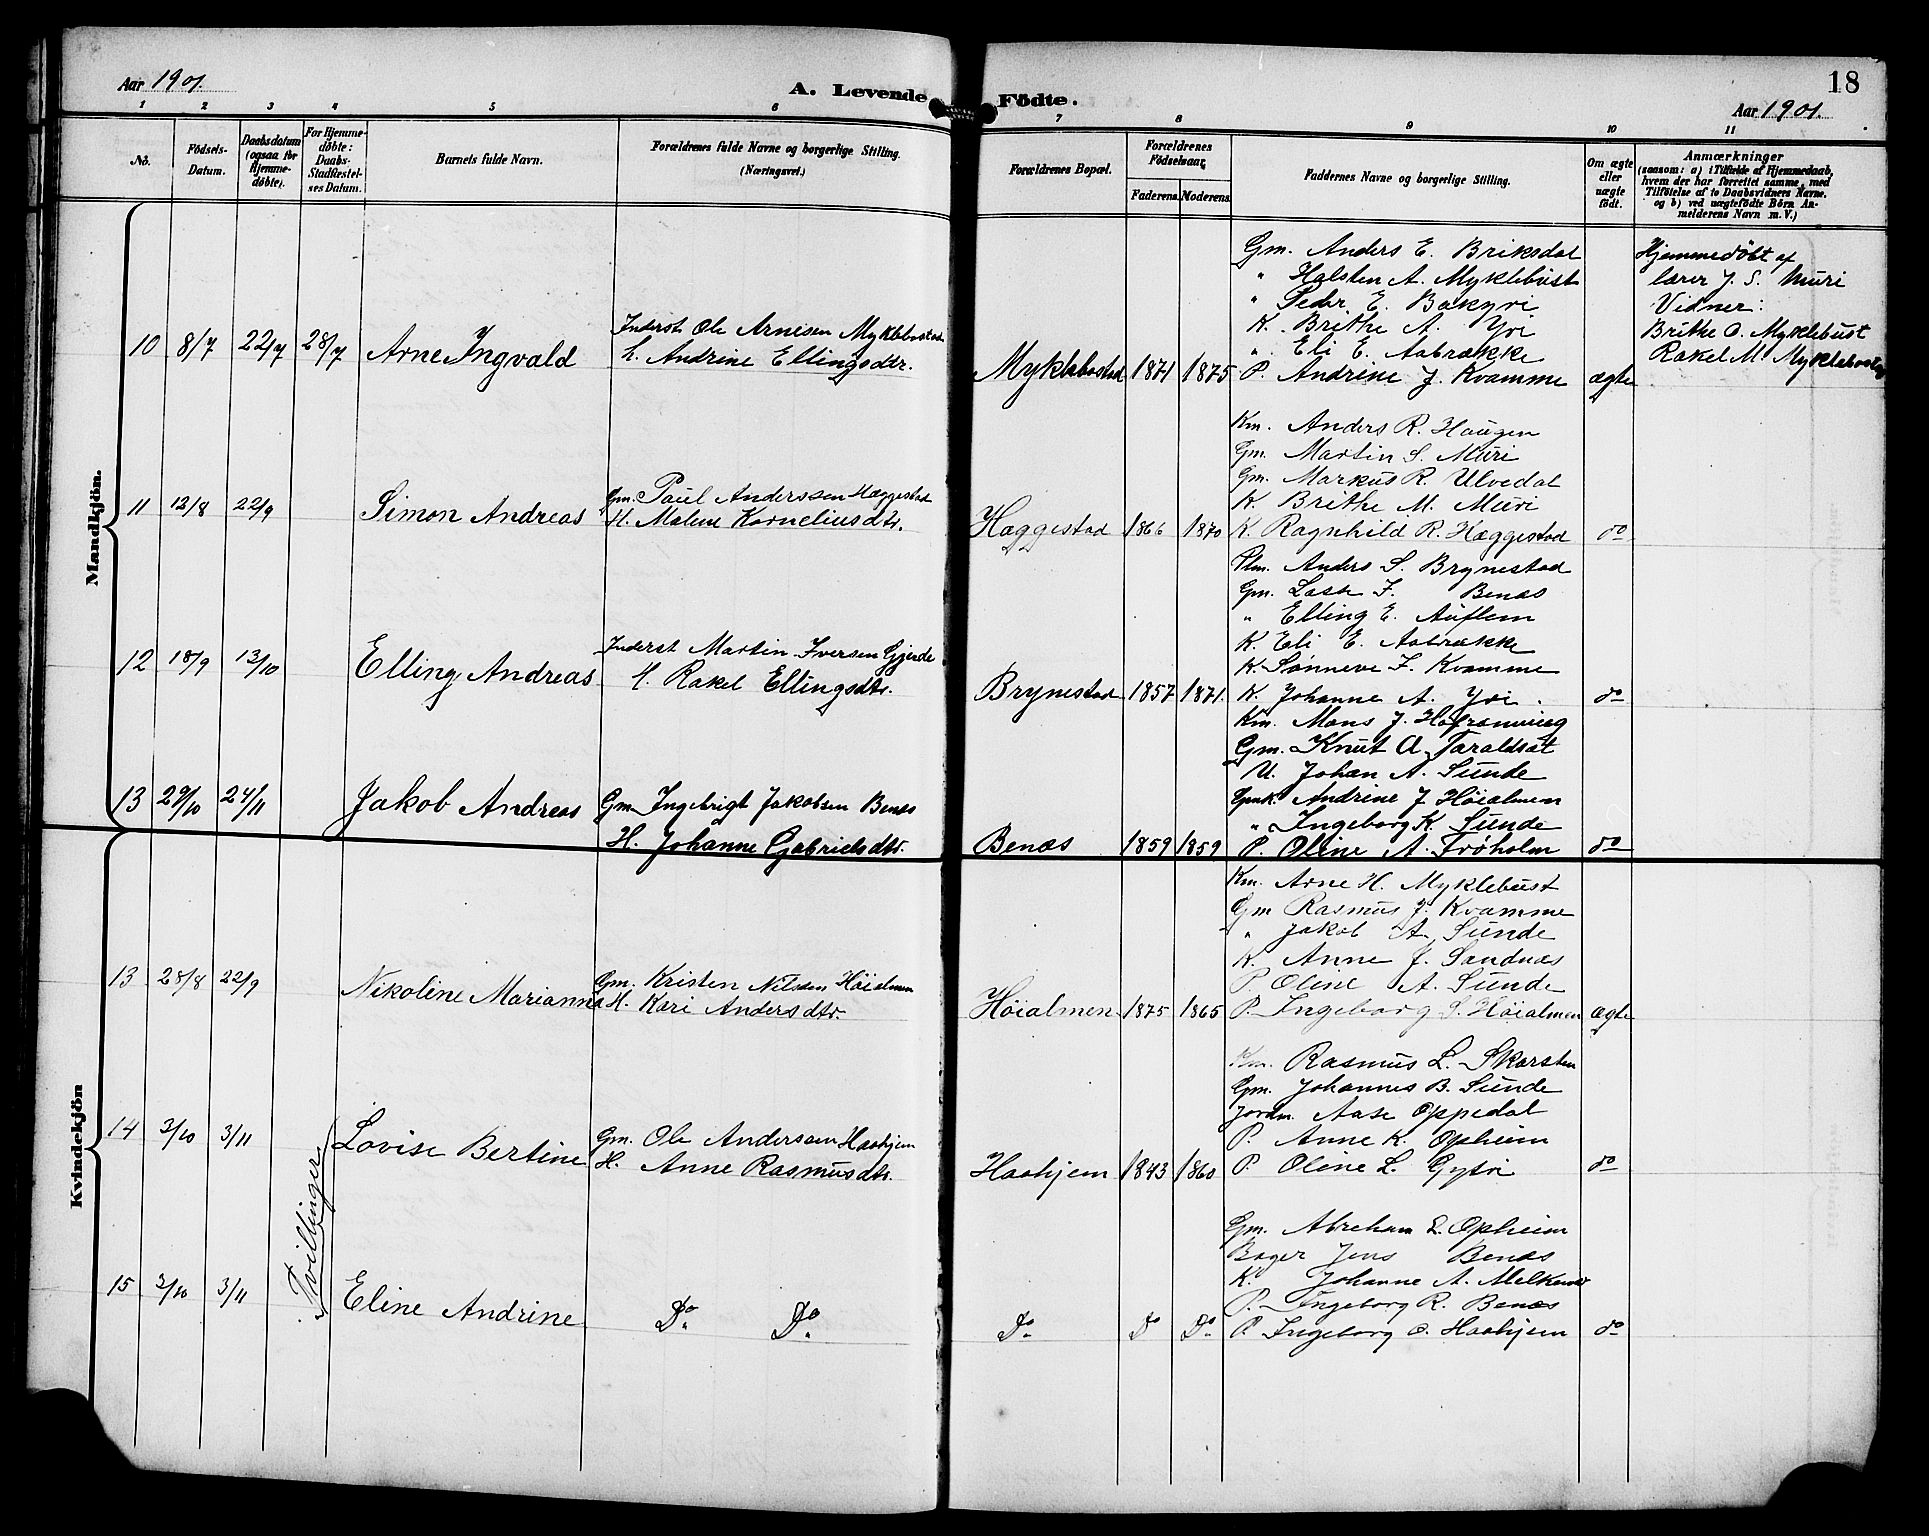 Aar 1901.
A. Levende Födte.
Aar 1901.
18
1 2 3 4 5 6 7 8 9 10 11
No.
Födsels-Datum.
Daabsdatum (ogsaa for Hjemmedöbte).
For Hjemmedöbte: Daabs-Stadfæstelses Datum.
Barnets fulde Navn.
Forældrenes fulde Navne og borgerlige Stilling. (Næringsvei.)
Forældrenes Bopæl.
Forældrenes Födselsaar.
Faderens. Moderens.
Faddernes Navne og borgerlige Stilling.
Om ægte eller uægte födt.
Anmærkninger
(saasom: a) i Tilfælde af Hjemmedaab,
hvem der har forrettet samme, med
Tilföielse af to Daabsvidners Navne.
og b) ved uægtefödte Börn An-
melderens Navn m. V.)
Mandkjön.
10 8/7 22/7 28/7 Arne Ingvald
Inderst Ole Arnesen Myklebostad
h. Andrine Ellingsdtr.
Myklebostad 1871 1875
Gm. Anders E. Briksdal
" Halsten A. Myklebust
" Peder E. Bakyri
K. Brithe A. Yri
" Eli E. Aabrække
P. Andrine J. Kvamme
ægte
Hjemmedöbt af
lærer J. S. Muri
Vidner:
Brithe O. Myklebust
Rakel M. Myklebostad
11 12/8 22/9 Simon Andreas
Gm. Paul Anderssen Hæggestad
H. Malene Korneliusdtr.
Hæggestad 1866 1870
Km. Anders R. Haugen
Gm. Martin S. Muri
Gm. Markus R. Ulvedal
K. Brithe M. Muri
K. Ragnhild R. Hæggestad
do
12 18/9 13/10 Elling Andreas
Inderst Martin Iversen Gjerde
H. Rakel Ellingsdtr.
Brynestad 1857 1871.
Anders S. Brynestad
Gm. Lasse J. Benæs
" Elling E. Auflem
K. Eli E. Aabrække
K. Sönneve J. Kvamme
K. Johanne A. Yri.
do
13 29/10 24/11 Jakob Andreas
Gm. Ingebrigt Jakobsen Benæs
H. Johanne Gabrielsdtr.
Benæs 1859 1859
Km. Mons J.
Gm. Knut A. Taraldsæt
U. Johan A. Sunde
Gmk. Andrine J. Höialmen
" Ingeborg K. Sunde
P. Oline A. Froholm
do
Kvindekjön
13 28/8 22/9 Nikoline Marianna
Gm. Kristen Nilsen Höialmen
H. Kari Andersdtr.
Höialmen 1875 1865
Km. Arne H. Myklebust
Gm Rasmus J. Kvamme
" Jakob A. Sunde
K. Anne J. Sandnæs
P. Oline A. Sunde
P. Ingeborg S. Höialmen
ægte
Tvillinger
14 3/10 3/11 Lovise Bertine
Gm. Ole Anderssen Haahjem
H. Anne Rasmusdtr.
Haahjem 1843 1860
Km. Rasmus L. Skarsten
Gm. Johannes B. Sunde
Jordm. Aase Oppedal
P. Anne K. Opheim
P. Oline L. Gytri
do
15 3/10 3/11 Eline Andrine
Do. Do.
Do. Do Do.
Gm. Abraham L. Opheim
Bager Jens Benæs
K. Johanne A.
P. Ingeborg R. Benæs
P. Ingeborg O. Haahjem
do